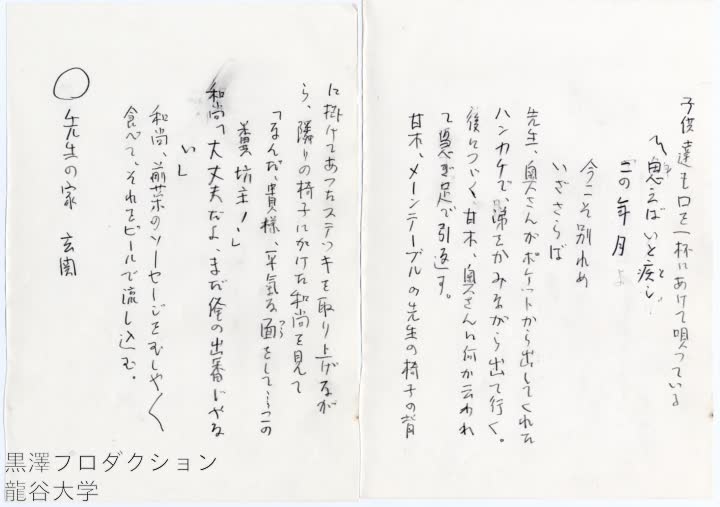 子供達も口を一杯にあけて唄っている
へ思えばいと疾し
この年月
今こそ別れめ
いざさらば
先生、奥さんがポケットから出してくれた
ハンカケで涕をかみながら出て行く。
後につゞく甘木、奥さんに何か云われ
て急ぎ足で引返す。
甘木、メーンテーブルの先生の椅子の背
に掛けてあったステッキを取り上げなが
ら、隣りの椅子にかけた和尚を見て
「なんだ、貴様、平気な面をして
つら
糞坊主!」
和尚「大丈夫だよ、まだ俺の出番じゃな
い」
和尚 前菜のソーセージをむしゃ〳〵
食べて、それをビールで流し込む。
○先生の家 玄関
黒澤プロダクション
龍谷大学